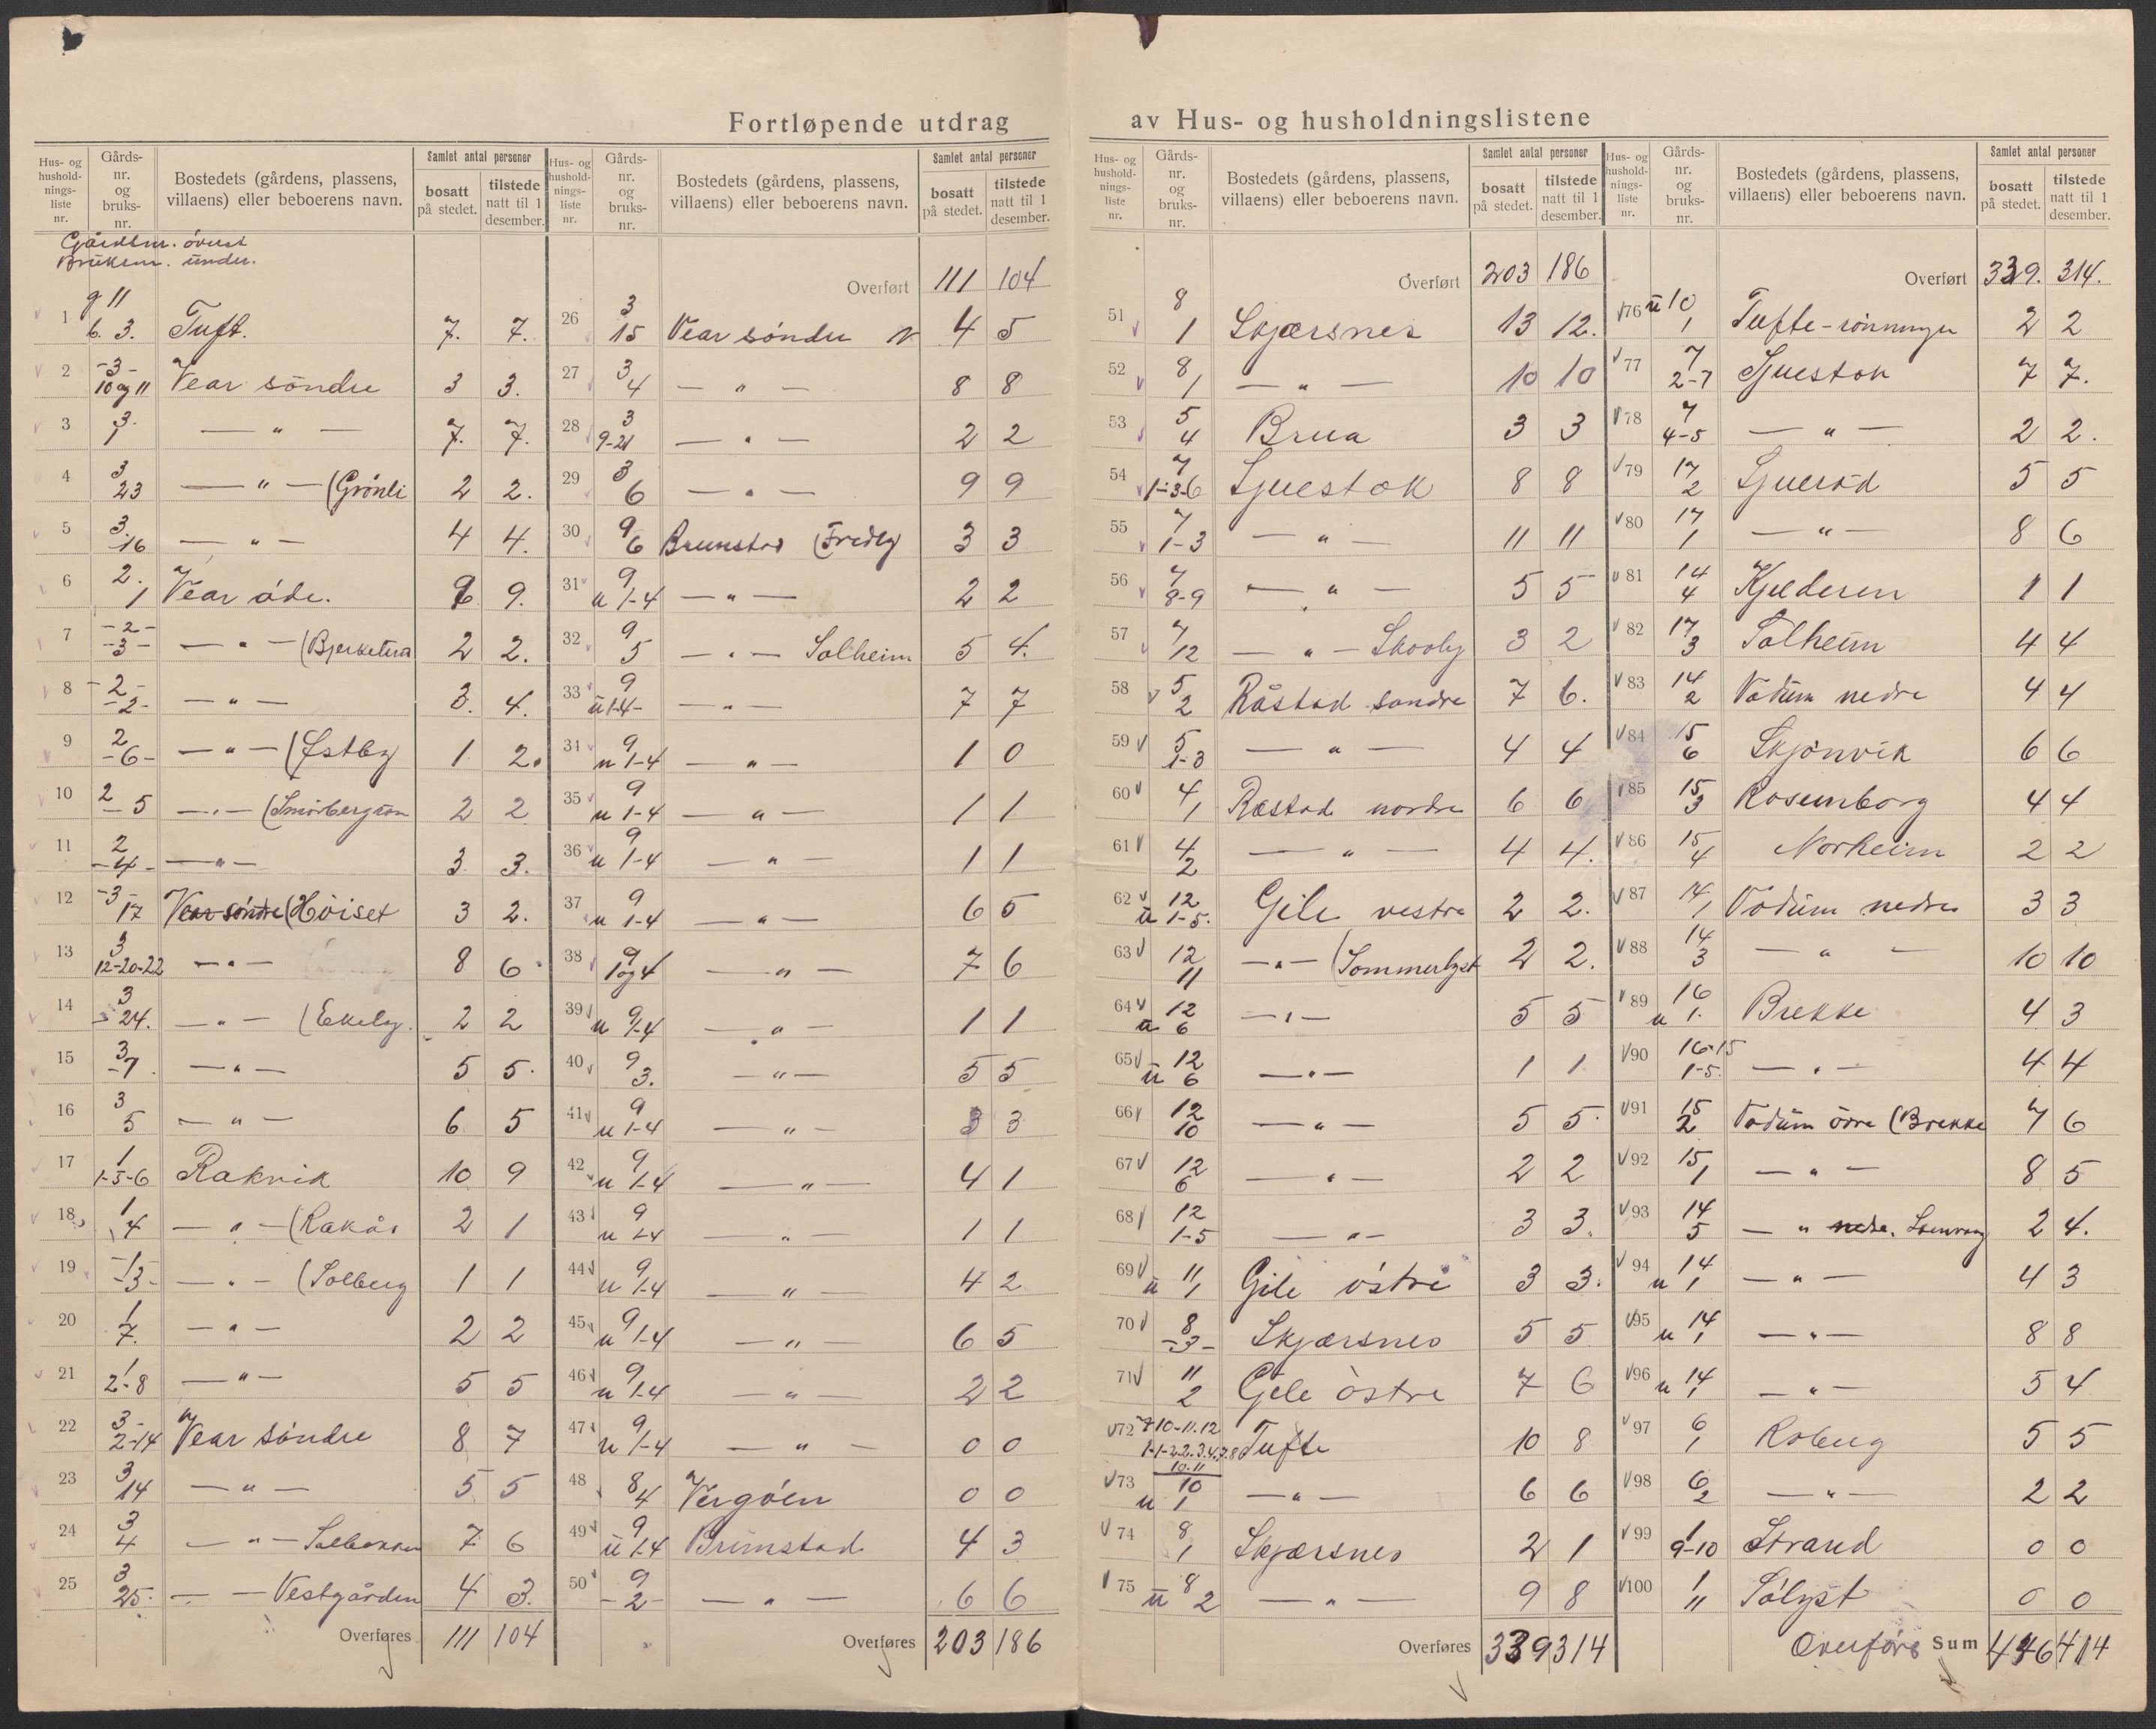 Fortløpende utdrag av Hus- og husholdningslistene
Hus- og hushold-nings-liste nr. | Gårds-nr. og bruks-nr. | Bostedets (gårdens, plassens, villaens) eller beboerens navn. | Samlet antal personer | bosatt på stedet. | tilstede natt til 1 desember.
Gårdsnr. øverst
Bruksnr. under.
1 g 11 b. 3. Tuft. 7. 7.
2 -3- 10 og 11 Vear söndre 3 3.
3 3. 1 — " — 7. 7.
4 3 23 — " — (Grónli 2 2.
5 3. -16 — " — 4 4.
6 2. 1 Vear óde. 9 9.
7 -2- -3- — " — (Bjerketun 2 2.
8 -2- -2- — " — 3. 4.
9 2 -6- — " — (Østby 1 2.
10 2 -5 — " — (Smörbergtun 2 2
11 2 -4- — " — 3 3.
12 -3- 17 Vear söndre (Höiset 3 2.
13 3 12-20-22 — " — 8 6
14 3 -24. — " — (Ekely. 2 2
15 3 -7. — " — 5 5.
16 3 5 — " — 6 5
17 1 1-5-6 Rakvik 10 9
18 1 4 — " — (Rakås 2 1
19 -1- -3- — " — (Solberg 1 1
20 1 7. — " — 2 2
21 1 2-8 — " — 5 5
22 3- 2-14 Vear söndre 8 7
23 3 14 — " — 5 5
24 3 4 — " — Solbakken 7 6
25 3 25. — — Vestgården 4 3.
Overføres 111 104
Overført 111 104
26 3 15 Vear söndre 4 5
27 3 4 — " — 8 8
28 3 9-21 — " — 2 2
29 3 6 — " — 9 9
30 9 6 Brunstad (Fredly 3 3
31 9 u 1-4 — " — 2 2
32 9 5 — " — Solheim 5 4.
33 9 u 1-4- — " — 7 7
34 9 u 1-4 — " — 1 0
35 9 u 1-4 — " — 1 1
36 9 u 1-4 — " — 1 1
37 9 u 1-4 — " — 6 5
38 9 1 og 4 — " — 7 6
39 u 9 1-4 — " — 1 1
40 9 3. — " — 5 5
41 9 u 1-4 — " — 3 3
42 9 u 1-4 — " — 4 1
43 9 u 1-4 — " — 1 1
44 9 u 1-4 — " — 4 2
45 9 u 1-4 — " — 6 5
46 9 u 1-4 — " — 2 2
47 9 u 1-4 — " — 0 0
48 8 4 Vergöen 0 0
49 9 u 1-4 Brunstad 4 3
50 9 -2- — " — 6 6
Overføres 203 186
Overført 203 186
51 8 1 Skjærsnes 13 12.
52 8 1 — " — 10 10
53 5 4 Brua 3 3
54 7 1-3-6 Sjuestok 8 8
55 7 1-3 — " — 11 11
56 7 8-9 — " — 5 5
57 7 12 — " — Skooly 3 2
58 5 2 Råstad sondre 7 6.
59 5 1-3 — " — 4 4
60 4 1 Råstad nordre 6 6
61 4 2 — " — 4 4.
62 12 u 1-5. Gile vestre 2 2.
63 12 11 — " — (Sommerlyst 2 2.
64 12 u 6 — " — 5 5
65 12 u 6 — " — 1 1
66 12 10 — " — 5 5.
67 12 6 — " — 2 2
68 12 1-5 — " — 3 3.
69 11 u 1 Gile östre 3 3.
70 8 -3- Skjærsnes 5 5
71 11 2 Gile östre 7 6
72 10-11.12 Tufte 10 8
73 10 u 1 — " — 6 6
74 8 1 Skjærsnes 2 1
75 8 u 2 — " — 9 8
Overføres 339 314
Overført 339. 314.
76 u 10 1 Tufte-rönningen 2 2
77 7 2-7 Sjuestok 7 7.
78 7 4-5 — " — 2 2.
79 17 2 Sjueröd 5 5
80 17 1 — " — 8 6
81 14 4 Kjelderen 1 1
82 17 3 Solheim 4 4
83 14 2 Vodum nedre 4 4
84 15 6 Skjönvik 6 6
85 15 3 Rosenborg 4 4
86 15 4 Norheim 2 2
87 14 1 Vodum nedre 3 3
88 14 3 — " — 10 10
89 16 u 1. Brekke 4 3
90 16-15 1-5. — " — 4 4
91 15 2 Vodum övre (Brekke 7 6
92 15 1 — " — 8 5
93 14 5 — " nedre. 2 4.
94 14 u 1 — " — 4 3
95 14 u 1 — " — 8 8
96 14 u 1 — " — 5 4
97 6 1 Roberg 5 5
98 6 2 — " — 2 2
99 1 9-10 Strand 0 0
100 1 11 Sólyst 0 0
Overføres Sum 446 414